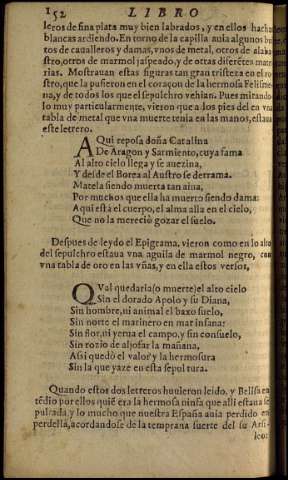 152 LIBRO
leros de fina plata muy bien labrados, y en ellos hachas
blancas ardiendo. En torno de la capilla auia algunos bu
tos de caualleros y damas, vnos de metal, otros de alaba
stro, otros de marmol jaspeado, y de otras diferẽtes mate
rias. Mostrauan estas figuras tan gran tristeza en el ro
stro, que la pusieron en el coraçon de la hermosa Felisme
na, y de todos los que el sepulchro vehian. Pues mirando
lo muy particularmente, vieron que a los pies del en vna
tabla de metal que vna muerte tenia en las manos, estaua
este letrero.
AQui reposa doña Catalina
De Aragon y Sarmiento, cuya fama
Al alto cielo llega y se auezina,
Y desde el Borea al Austro se derrama.
Matela siendo muerta tan aina,
Por muchos que ella ha muerto siendo dama:
Aqui està el cuerpo, el alma alla en el cielo,
Que no la mereciò gozar el suelo.
Despues de leydo el Epigrama, vieron como en lo alto
del sepulchro estaua vna aguila de marmol negro, con
vna tabla de oro en las vñas, y en ella estos versos,
QVal quedaria (o muerte) el alto cielo
Sin el dorado Apolo y su Diana,
Sin hombre, ni animal el baxo suelo,
Sin norte el marinero en mar insana:
Sin flor, ni yerua el campo, y sin consuelo,
Sin rozio de aljofar la mañana,
Assi quedò el valor y la hermosura
Sin la que yaze en esta sepultura.
Quando estos dos letreros huuieron leido, y Belisa en
tẽdio por ellos quiẽ era la hermosa ninfa que alli estaua se
pultada, y lo mucho que nuestra España auia perdido en
perdella, acordandose de la temprana suerte del su Arsi-
leo: